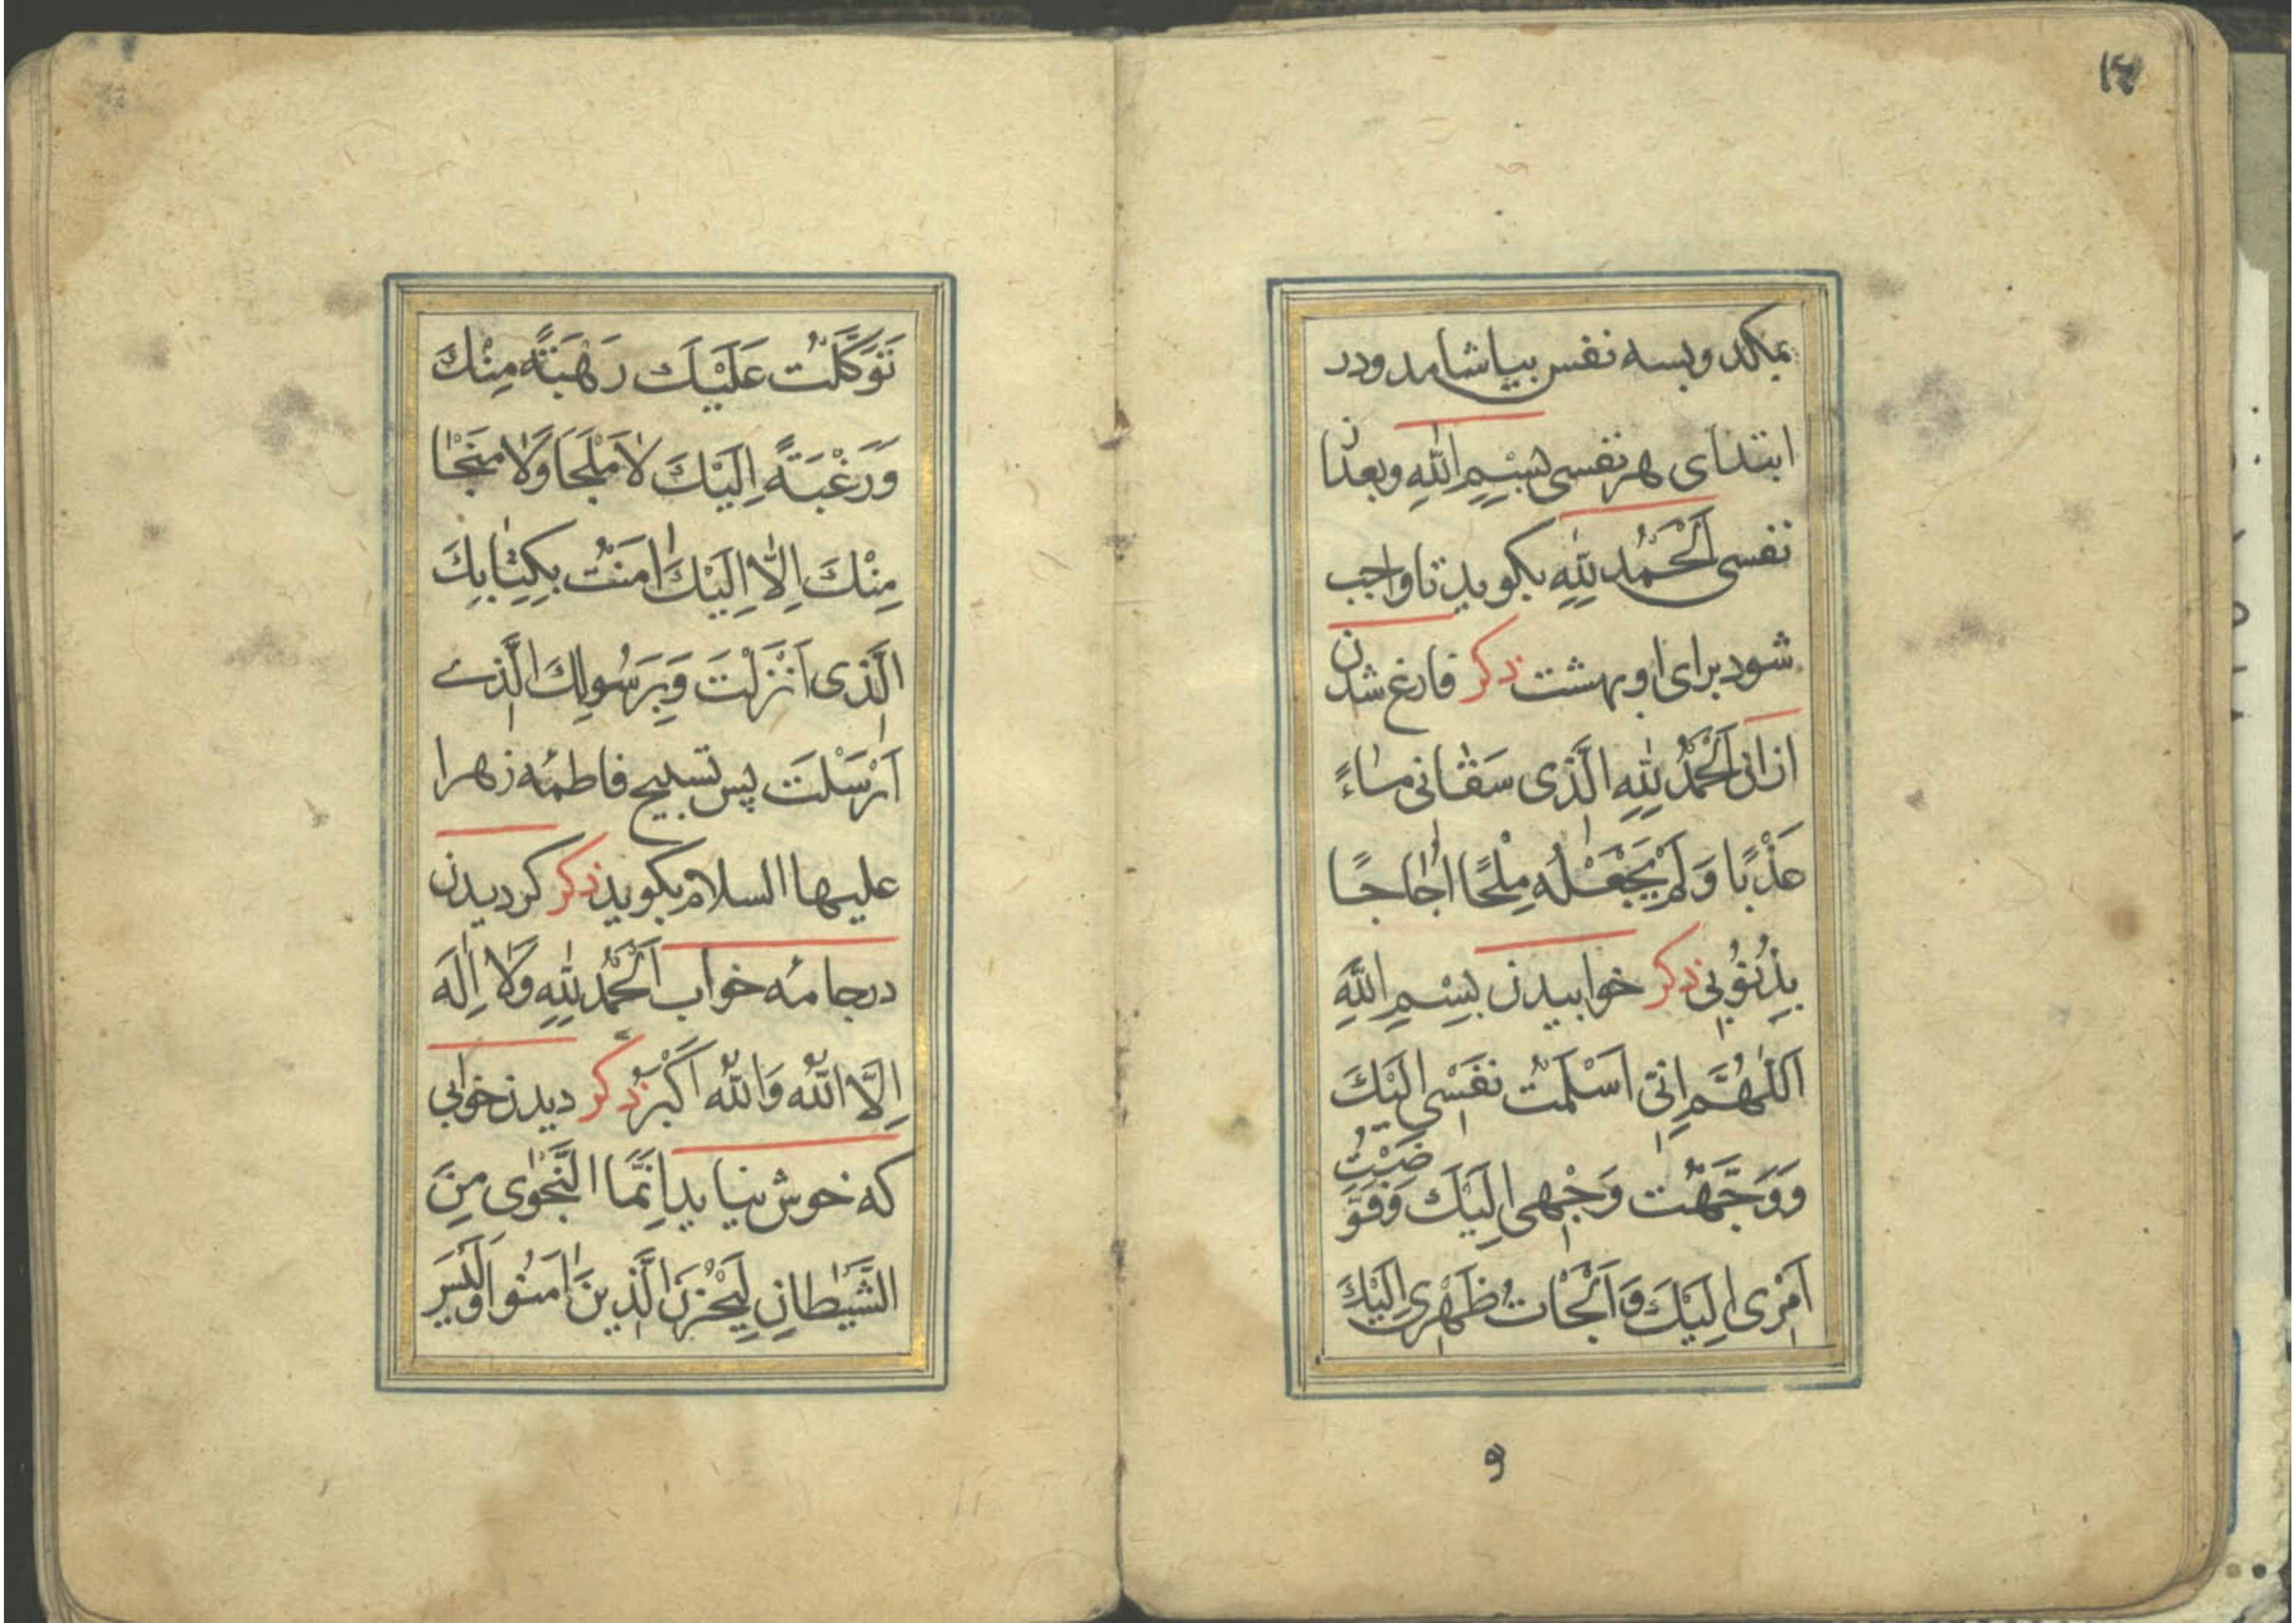 بمکد وبسه نفس بیاشامد ودر
ابتدای هر نفسی بِسْمِ اللّٰهِ وبعدان
نفسی اَلْحَمْدُ لِلّٰهِ بکوید تا واجب
شود برای او بهشت ذکر فارغ شدن
ازان اَلْحَمْدُ لِلّٰهِ الَّذی سَقٰانی مٰاءً
عَذْبًا وَلَمْ یَجْعَلْهُ مِلْحًا اُجٰاجًا
بِذُنُوُبی ذکر خوابیدن بِسْمِ اللّٰهِ
اَللّٰهُمَّ اِنّی اَسْلَمْتُ نَفْسی اِلَیْكَ
وَوَجَّهْتُ وَجْهی اِلَیْكَ وَفَوَّضْتُ
اَمْری اِلَیْكَ وَاَلْجَاْتُ ظَهْری اِلَیْكَ
و
تَوَكَّلْتُ عَلَیْكَ رَهْبَةً مِنْكَ
وَرَغْبَةً اِلَیْكَ لٰا مَلْجَاَ وَلٰا مَنْجٰا
مِنْكَ اِلّٰا اِلَیْكَ اٰمَنْتُ بِكِتٰابِكَ
الَّذی اَنْزَلْتَ وَبِرَسُولِكَ الَّذی
اَرْسَلْتَ پس تسبیح فاطمهٔ زهرا
علیها السلام بکوید ذکر کردیدن
درجامهٔ خواب اَلْحَمْدُ لِلّٰهِ وَلٰا اِلٰهَ
اِلَّا اللّٰهُ وَاللّٰهُ اَکْبَرُ ذکر دیدن خوابی
که خوش نیاید اِنَّمَا النَّجْوٰی مِنَ
الشَّیْطٰانِ لِیَحْزُنَ الَّذینَ اٰمَنُوا وَلَیْسَ